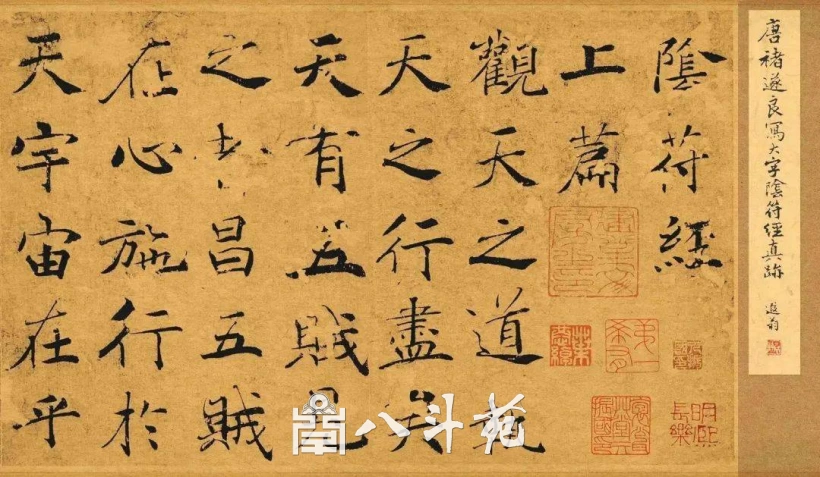 唐褚遂良寫大字陰符經真跡 遐翁
陰符經
上篇
觀天之道執
天之行盡矣
天有五賊見
之者昌五賊
在心施行於
天宇宙在乎
八斗苑